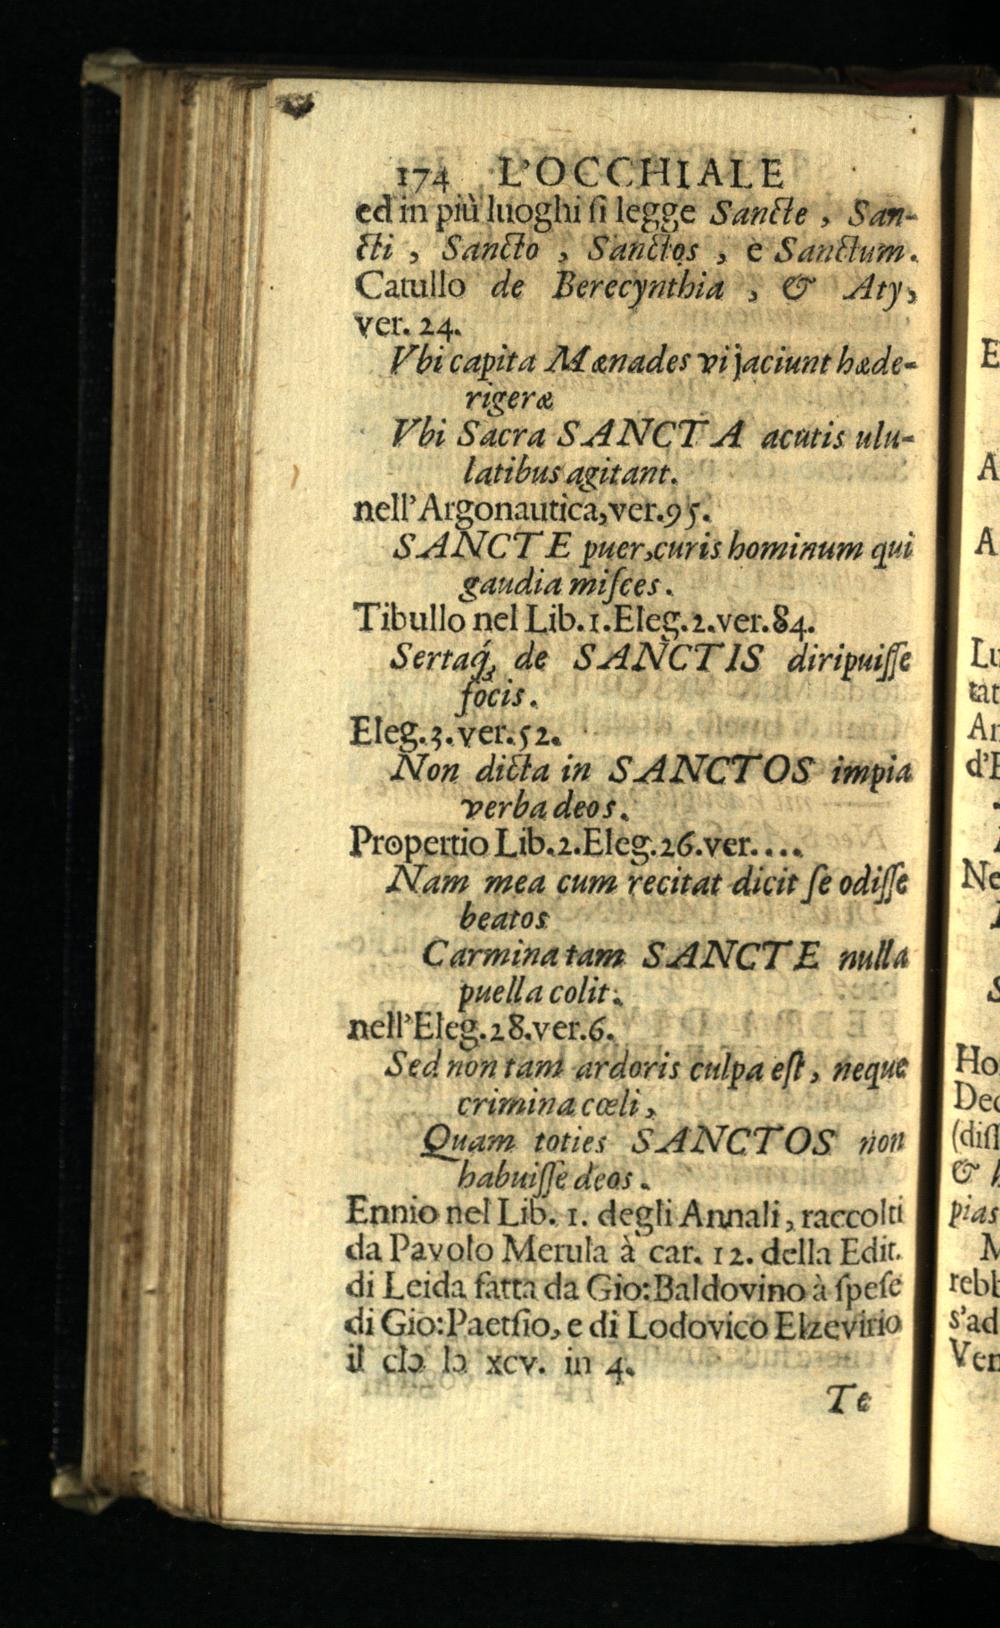 174 L'OCCHIALE
ed in più luoghi ſi legge Sancte, San-
cti, Sancto, Sanctos, e Sanctum.
Catullo de Berecynthia, & Aty,
ver. 24.
Vbi capita Mænades vi jaciunt hæde-
rigeræ
Vbi Sacra SANCTA acutis ulu-
latibus agitant.
nell'Argonautica, ver. 95.
SANCTE puer, curis hominum qui
gaudia miſces.
Tibullo nel Lib. 1. Eleg. 2. ver. 84.
Sertaq́; de SANCTIS diripuiſſe
focis.
Eleg. 3. ver. 52.
Non dicta in SANCTOS impia
verba deos.
Propertio Lib. 2. Eleg. 26. ver....
Nam mea cum recitat dicit ſe odiſſe
beatos
Carmina tam SANCTE nulla
puella colit.
nell'Eleg. 28. ver. 6.
Sed non tam ardoris culpa eſt, neque
crimina cœli,
Quam toties SANCTOS non
habuiſſe deos.
Ennio nel Lib. 1. degli Annali, raccolti
da Pavolo Merula à car. 12. della Edit.
di Leida fatta da Gio: Baldovino à ſpeſe
di Gio: Paetſio, e di Lodovico Elzevirio
il cIↄ Iↄ xcv. in 4.
Te
E
A
A
Lu
tat
An
d'E
Ne
S
Ho
Dec
(diſſ
& h
pias
M
rebb
s'ad
Ven